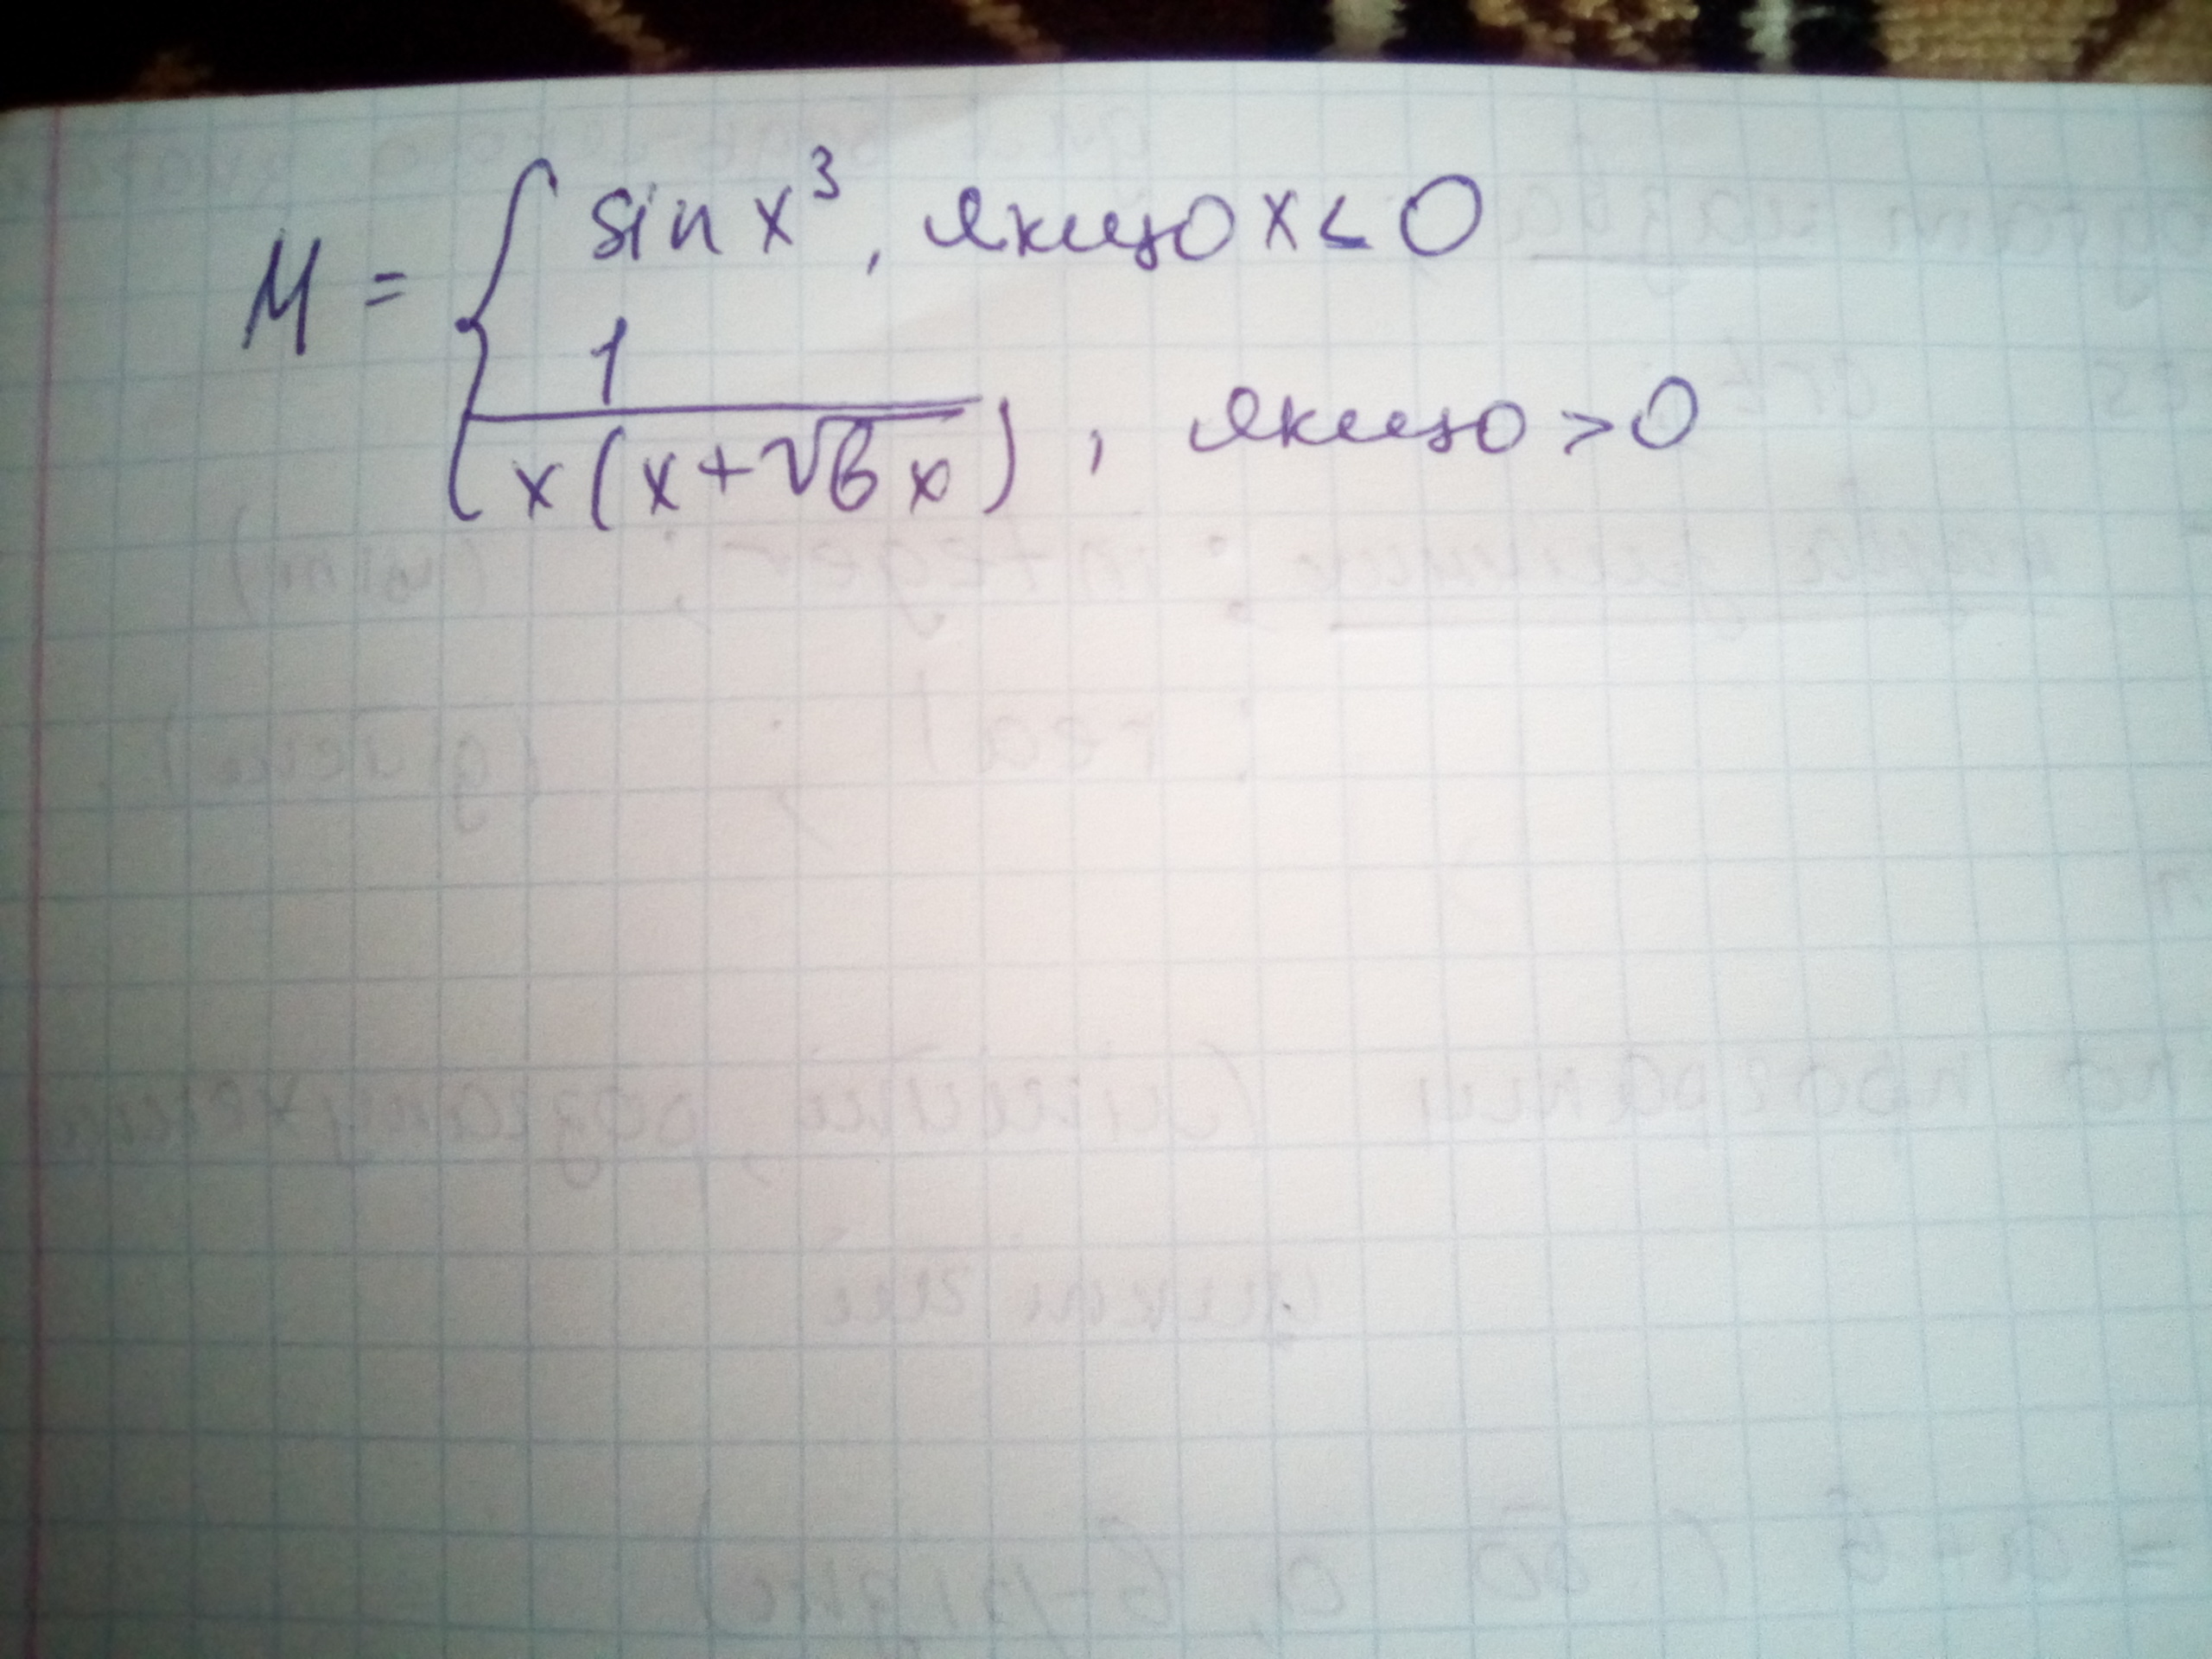 M = { sin x³, якщо x < 0
1
x(x+√6x) , якщо > 0